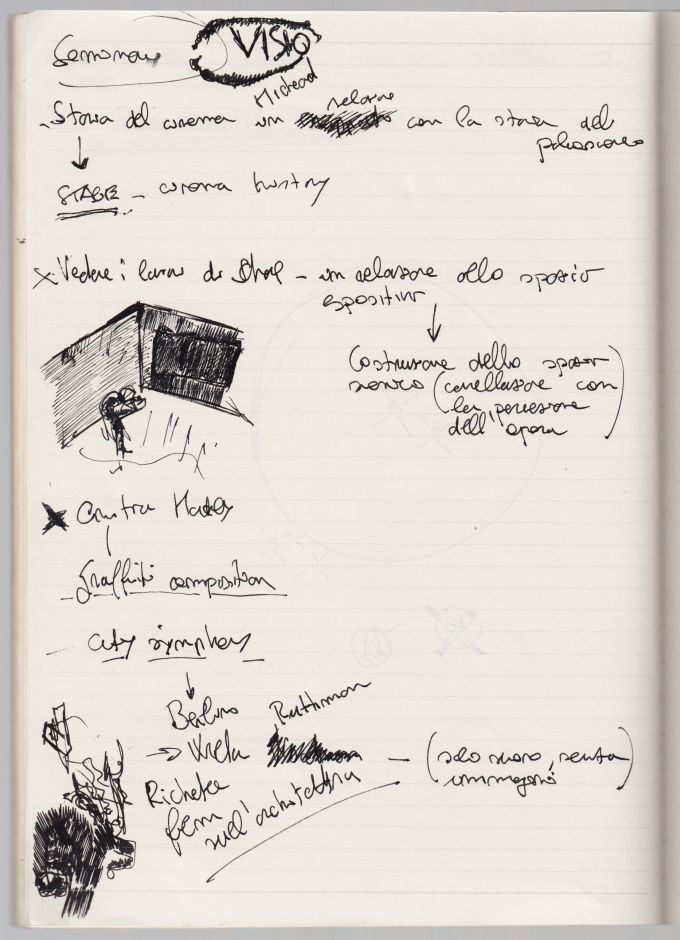 VISIO
Storia del cinema in relazione con la storia del
palcoscenico
STAGE – cinema history
x Vedere i lavori di – in relazione allo spazio
espositivo
Costruzione dello spazio
scenico (correlazione con
la percezione
dell'opera)
Graffiti composition
– city symphony
Berlino Ruttman
→ – (solo suono, senza
immagini)
Richter
film
sull'architettura